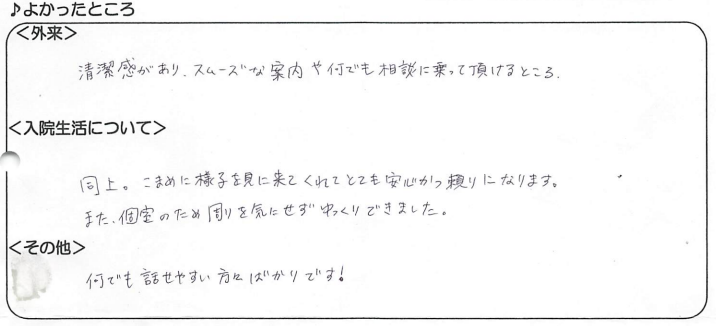 ♪よかったところ
＜外来＞
清潔感があり、スムーズな案内や何でも相談に乗って頂けるところ.
＜入院生活について＞
同上。こまめに様子を見に来てくれてとても安心かつ頼りになります。
また、個室のため周りを気にせずゆっくりできました。
＜その他＞
何でも話せやすい方々ばかりです!